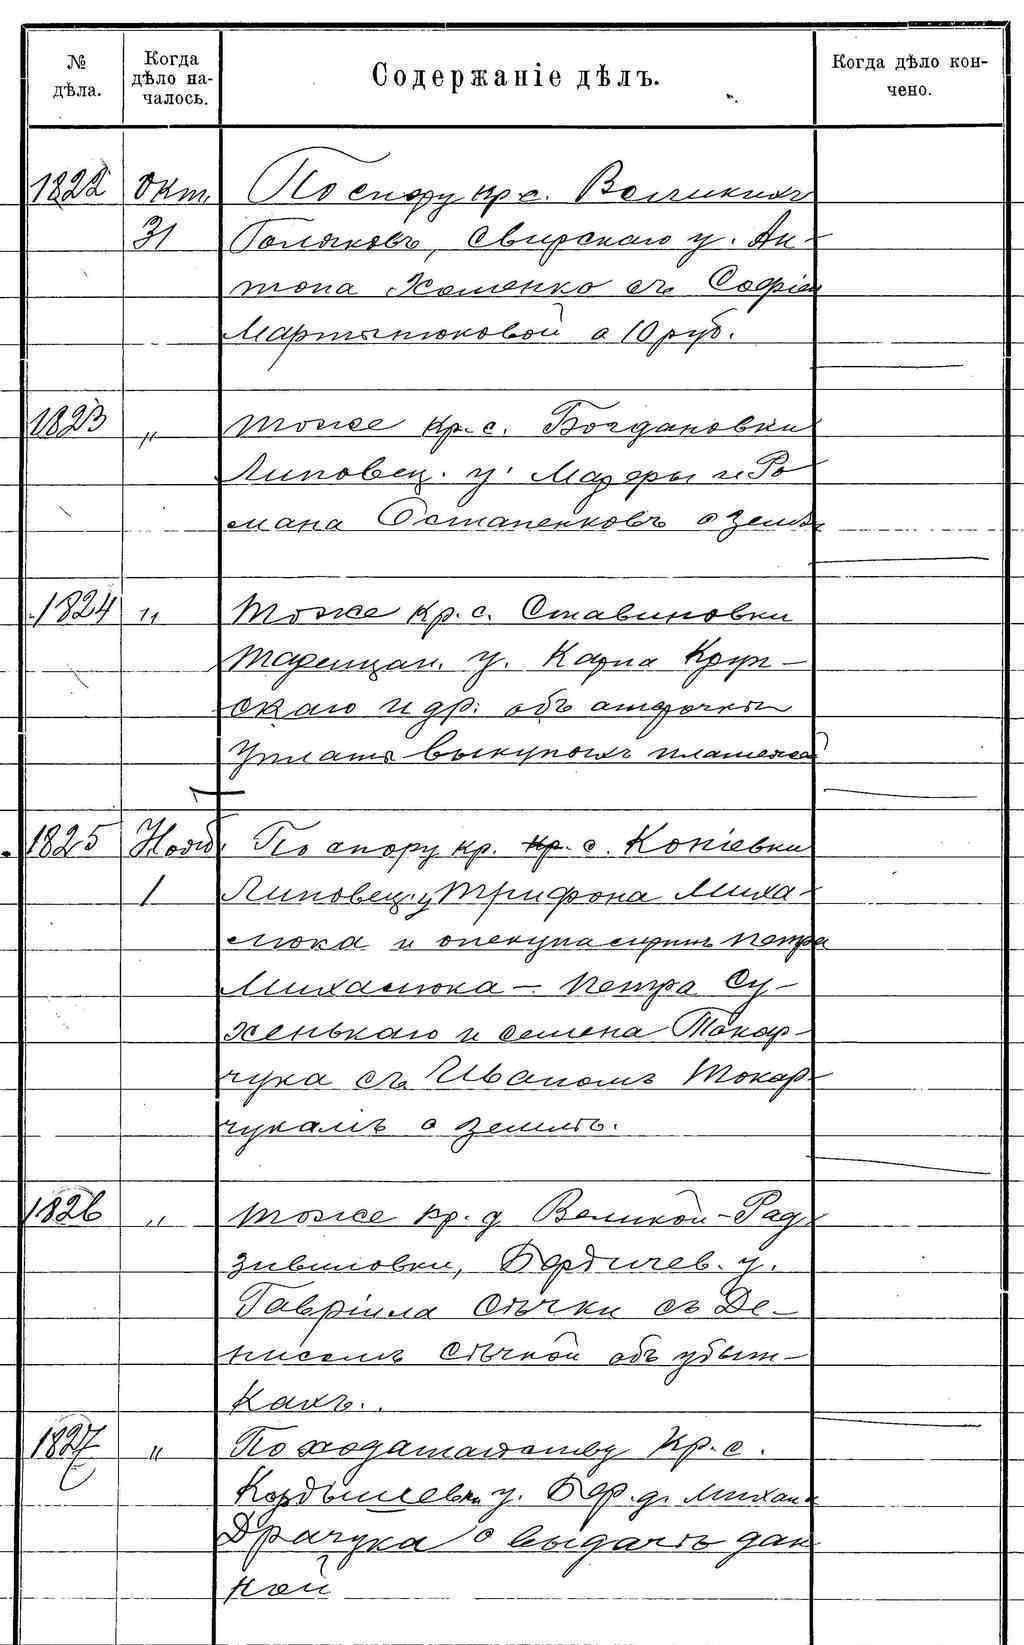 № дѣла.
Когда дѣло на-
чалось.
Содержаніе дѣлъ.
Когда дѣло кон-
чено.
1822 Окт. По спору кр. с. Великихъ
31 Голяковъ, Свирскаго у. Ан-
тона Хоменко съ Софіей
Мартынюковой о 10 руб.
1823 " Тоже кр. с. Богдановки
Липовец. у. Мадеры и Ро
мана Остапенковъ о землѣ
1824 " Тоже кр. с. Ставиновки
Таращан. у. Карпа Круп-
скаго и др. объ отсрочкѣ
уплаты выкупныхъ платежей
1825 Нояб. По спору кр. кр. с. Копіевки
1 Липовец. у Трифона Миха-
люка и опекуна сиротъ Петра
Михалюка - Петра Су-
хенькаго и Семена Токар-
чука съ Иваномъ Токар-
чукомъ о землѣ.
1826 " Тоже кр. д Великой-Рад
зивиловки, Бердичев. у.
Гавріила Сѣчки съ Де-
нисомъ Сѣчкой объ убыт-
кахъ..
1827 " По ходатайству кр. с.
Кордышевки у. Бер. д. Михаила
Драчука о выдачѣ дан
ной